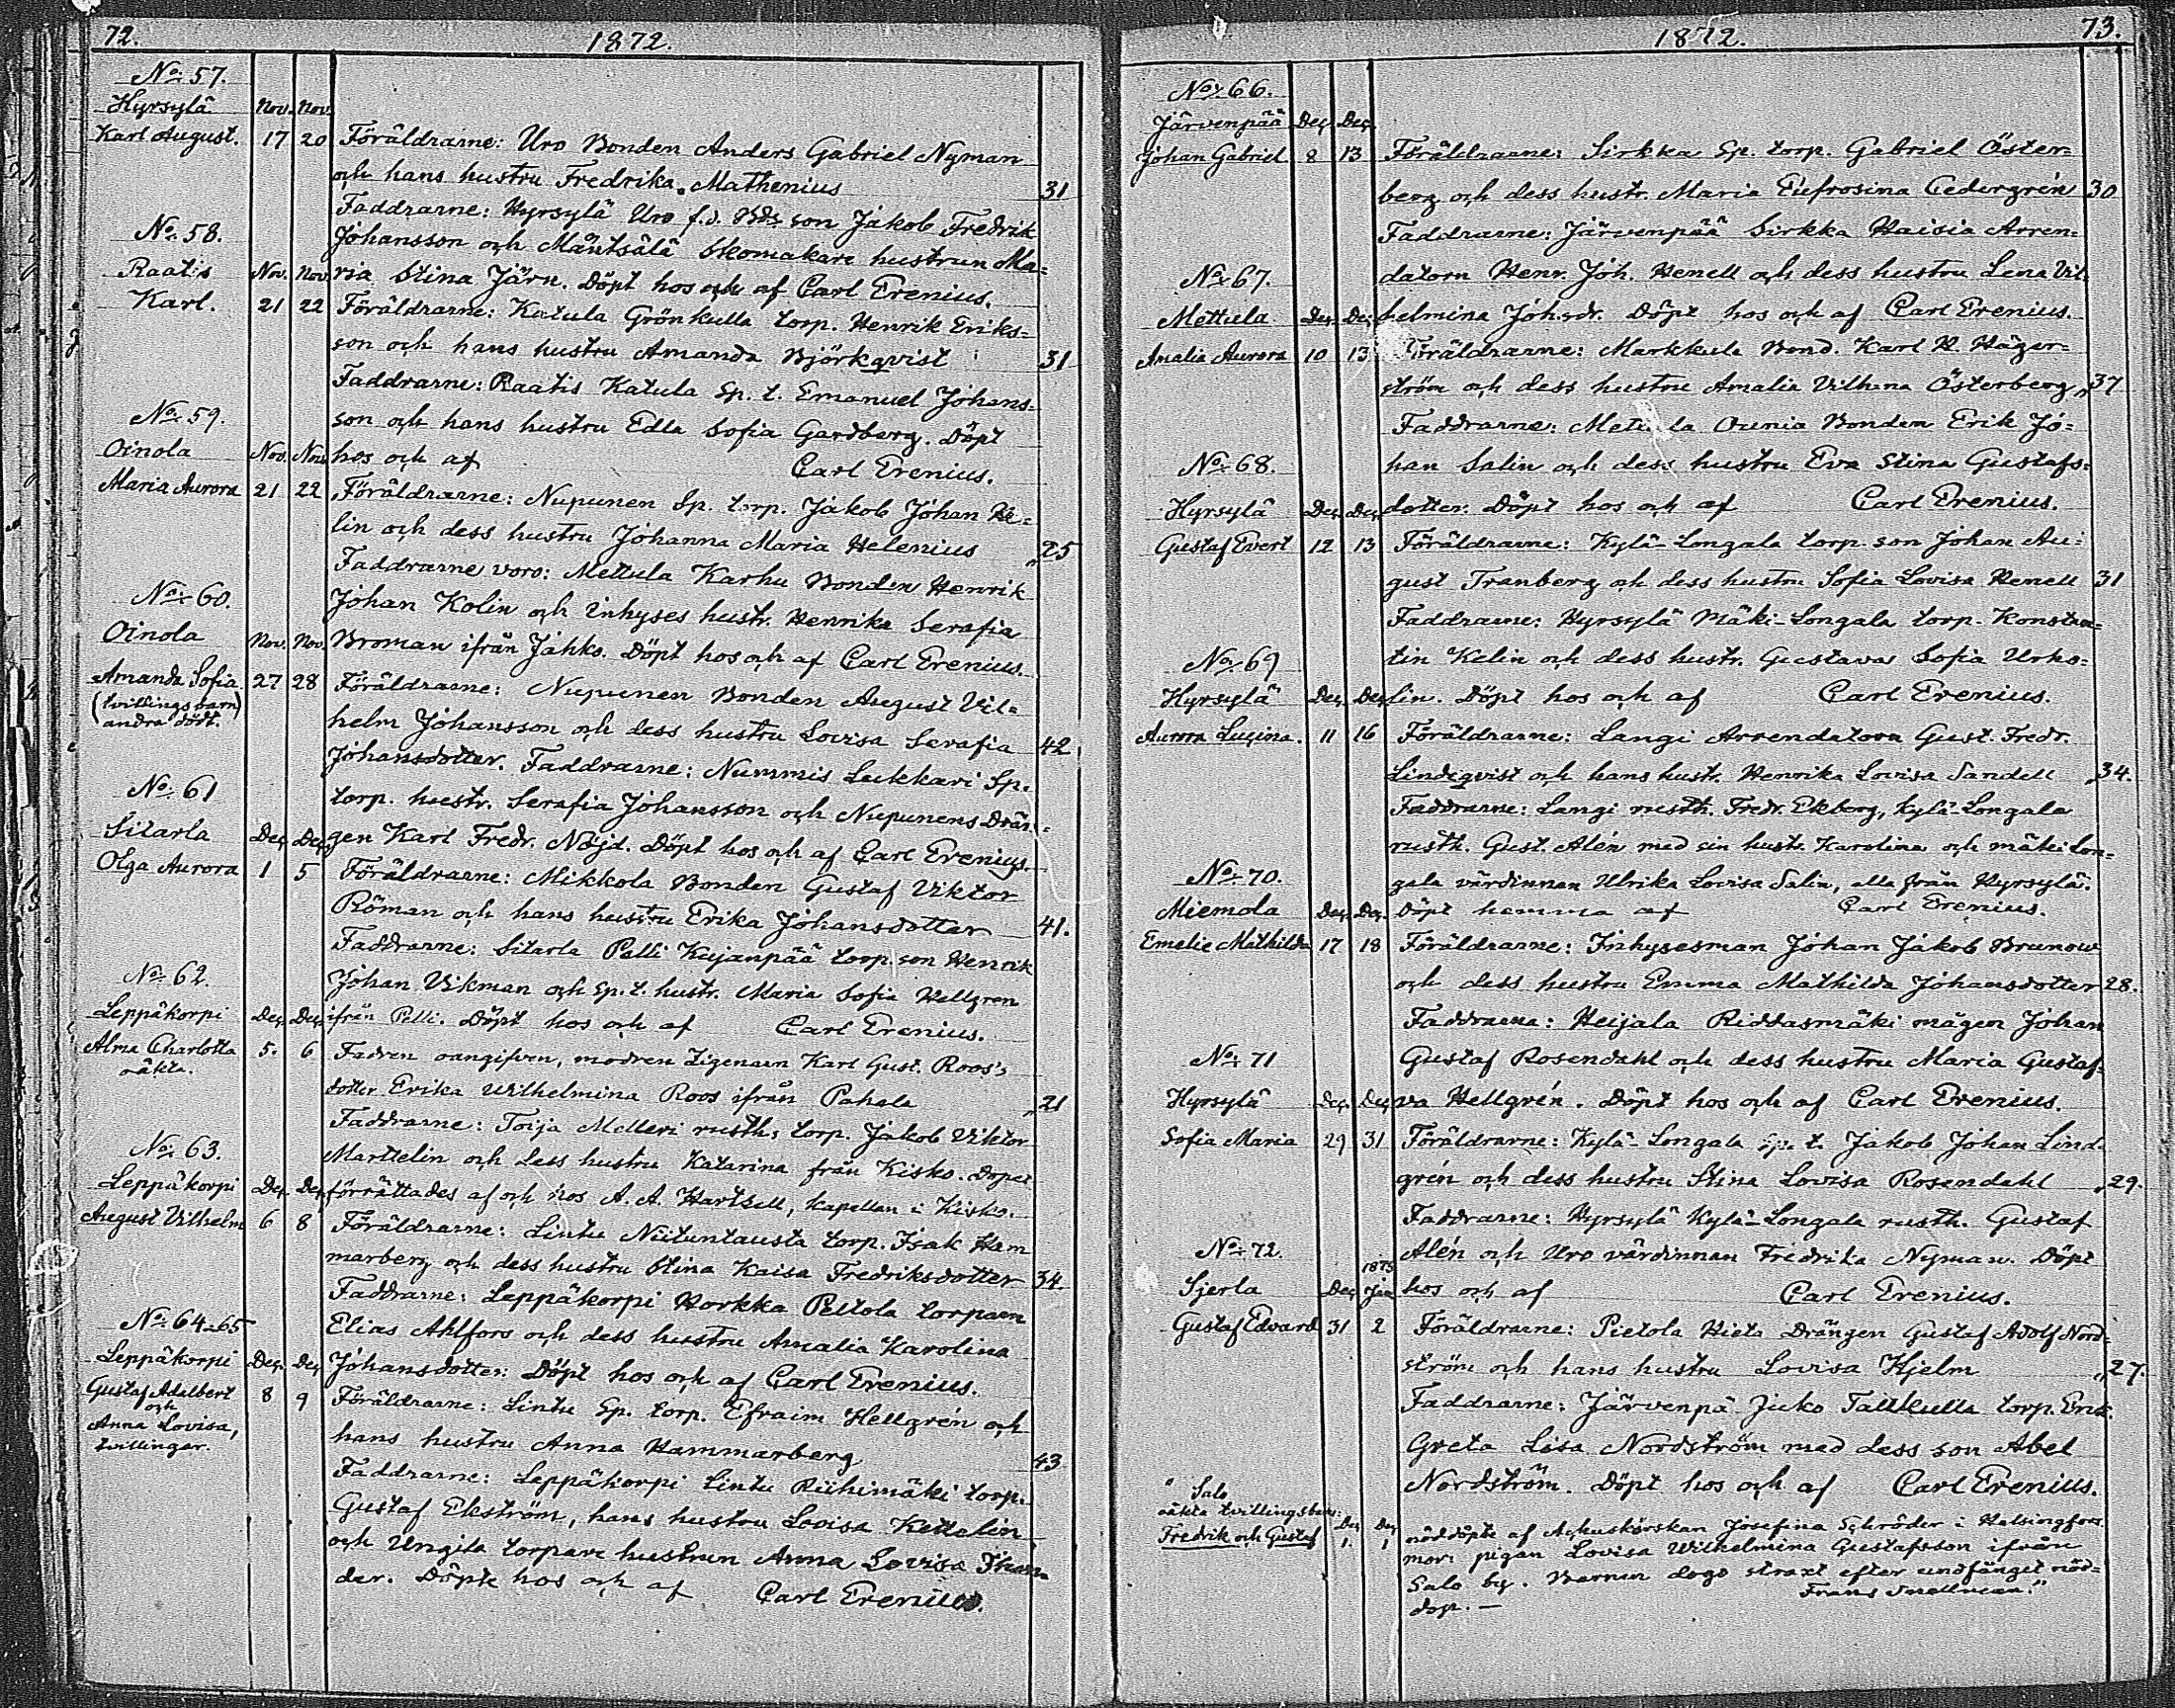 72.
1872.
No 57.
Hyrsylä Nov. Nov.
Karl August. 17 20 Föräldrarne: Uro Bonden Anders Gabriel Nyman
och hans hustru Fredrika Mathenius 31
Faddrarne: Hyrsylä Uro f.d. Bds son Jakob Fredrik
No 58.
Johansson och Mäntsälä Skomakare hustrun Ma=
Raatis Nov. Nov. ria Stina Järn. Döpt hos och af Carl Erenius.
Karl. 21 22 Föräldrarne: Katula Grönkulla torp. Henrik Eriks=
son och hans hustru Amanda Björkqvist 31
Faddrarne: Raatis Katula Sp. t. Emanuel Johans=
No 59.
son och hans hustru Edla Sofia Gardberg. Döpt
Oinola Nov. Nov. hos och af Carl Erenius.
Maria Aurora 21 22 Föräldrarne: Nupunen Sp. torp. Jakob Johan He=
lin och dess hustru Johanna Maria Helenius 25
Faddrarne voro: Mettula Karhu Bonden Henrik
No 60.
Johan Kolin och Inhyses hustr. Henrika Serafia
Oinola Nov. Nov. Broman ifrån Jahko. Döpt hos och af Carl Erenius.
Amanda Sofia 27 28 Föräldrarne: Nupunen Bonden August Vil=
(tvillingsbarn)
andra dödt.
helm Johansson och dess hustru Lovisa Serafia 42
Johansdotter. Faddrarne: Nummis Lukkari Sp.
No 61
torp. hustr. Serafia Johansson och Nupunens Drän=
Sitarla Dec. Dec. gen Karl Fredr. Nöjd. Döpt hos och af Carl Erenius.
Olga Aurora 1 5 Föräldrarne: Mikkola Bonden Gustaf Viktor
Röman och hans hustru Erika Johansdotter 41.
Faddrarne: Sitarla Pelli Kujanpää torp. son Henrik
No 62.
Johan Vikman och Sp. t. hustr. Maria Sofia Hellgren
Leppäkorpi Dec. Dec. ifrån Pelli. Döpt hos och af Carl Erenius.
Alma Charlotta 5. 6 Fadren oangifven, modren Zigenaren Karl Gust. Roos's
oäkta.
dotter Erika Wilhelmina Roos ifrån Pahala 21
Faddrarne: Toija Melleri rusth. torp. Jakob Viktor
No 63.
Marttelin och dess hustru Katarina från Kisko. Dopet
Leppäkorpi Dec. Dec. förrättades af och hos A. A. Hartzell, kapellan i Kisko.
August Vilhelm 6 8 Föräldrarne: Lintu Niituntausta torp. Isak Ham
marberg och dess hustru Stina Kaisa Fredriksdotter 34.
Faddrarne: Leppäkorpi Horkka Peltola torparen
No 64-65
Elias Ahlfors och dess hustru Amalia Karolina
Leppäkorpi Dec. Dec. Johansdotter: Döpt hos och af Carl Erenius.
Gustaf Adalbert 8 9 Föräldrarne: Lintu Sp. torp. Efraim Hellgrén och
och
Anna Lovisa,
tvillingar.
hans hustru Anna Hammarberg 43
Faddrarne: Leppäkorpi Lintu Riihimäki torp.
Gustaf Ekström, hans hustru Lovisa Kettelin
och Ungila torpare hustrun Anna Lovisa
der. Döpte hos och af Carl Erenius.
1872.
73.
No 66.
Järvenpää Dec. Dec.
Johan Gabriel 8 13 Föräldrarne: Sirkka Sp. torp. Gabriel Öster=
berg och dess hustr. Maria Eufrosina Cedergrén 30
Faddrarne: Järvenpää Sirkka Haisia Arren=
No 67.
datorn Henr. Joh. Henell och dess hustru Lena Vil
Mettula Dec. Dec. helmina Johsdr. Döpt hos och af Carl Erenius.
Amalia Aurora 10 13 Föräldrarne: Markkula Bond. Karl H. Häger=
ström och dess hustru Amalia Vilhna Österberg 37
Faddrarne: Metula Ounia Bonden Erik Jo=
No 68.
han Salin och dess hustru Eva Stina Gustafs=
Hyrsylä Dec. Dec. dotter. Döpt hos och af Carl Erenius.
Gustaf Evert 12 13 Föräldrarne: Kylä-Longala torp. son Johan Au=
gust Tranberg och dess hustru Sofia Lovisa Henell 31
Faddrarne: Hyrsylä Mäki-Longala torp. Konstan=
No 69
tin Kelin och dess hustr. Gustava Sofia Urho=
Hyrsylä Dec. Dec. lin. Döpt hos och af Carl Erenius.
Aurora Lucina. 11 16 Föräldrarne: Langi Arrendatorn Gust. Fredr.
Lindeqvist och hans hustr. Henrika Lovisa Sandell 34.
Faddrarne: Langi rusth. Fredr. Ekberg, Kylä-Longala
rusth. Gust. Alén med sin hustr. Karolina och mäki Lon=
No 70.
gala värdinnan Ulrika Lovisa Salin, alla från Hyrsylä.
Miemola Dec. Dec. Döpt hemma af Carl Erenius.
Emelie Mathilda 17 18 Föräldrarne: Inhysesman Johan Jakob Brunow
och dess hustru Emma Mathilda Johansdotter 28.
Faddrarne: Heijala Riddasmäki mågen Johan
No 71
Gustaf Rosendahl och dess hustru Maria Gustaf=
Hyrsylä Dec. Dec. va Hellgrén. Döpt hos och af Carl Erenius.
Sofia Maria 29 31 Föräldrarne: Kylä-Longala Sp. t. Jakob Johan Lind=
grén och dess hustru Stina Lovisa Rosendahl 29.
Faddrarne: Hyrsylä Kylä-Longala rusth. Gustaf
No 72.
Alén och Uro värdinnan Fredrika Nyman. Döpt
1873
Sjerla Dec. Jan hos och af Carl Erenius.
Gustaf Edvard 31 2 Föräldrarne: Pietola Hieta Drängen Gustaf Adolf Nord=
ström och hans hustru Lovisa Hjelm 27.
Faddrarne: Järvenpä Juko Tallkulla torp. Enk.
Greta Lisa Nordström med dess son Abel
Nordström. Döpt hos och af Carl Erenius.
" Salo
oäkta tvillingsbarn:
Fredrik och Gustaf Dec. 1. Dec. 1 nöddöpte af Ackuschörskan Josefina Schröder i Helsingfors.
mor: pigan Lovisa Wilhelmina Gustafsson ifrån
Salo by. Barnen dogo straxt efter undfånget nöd=
dop. — Frans Snellman."